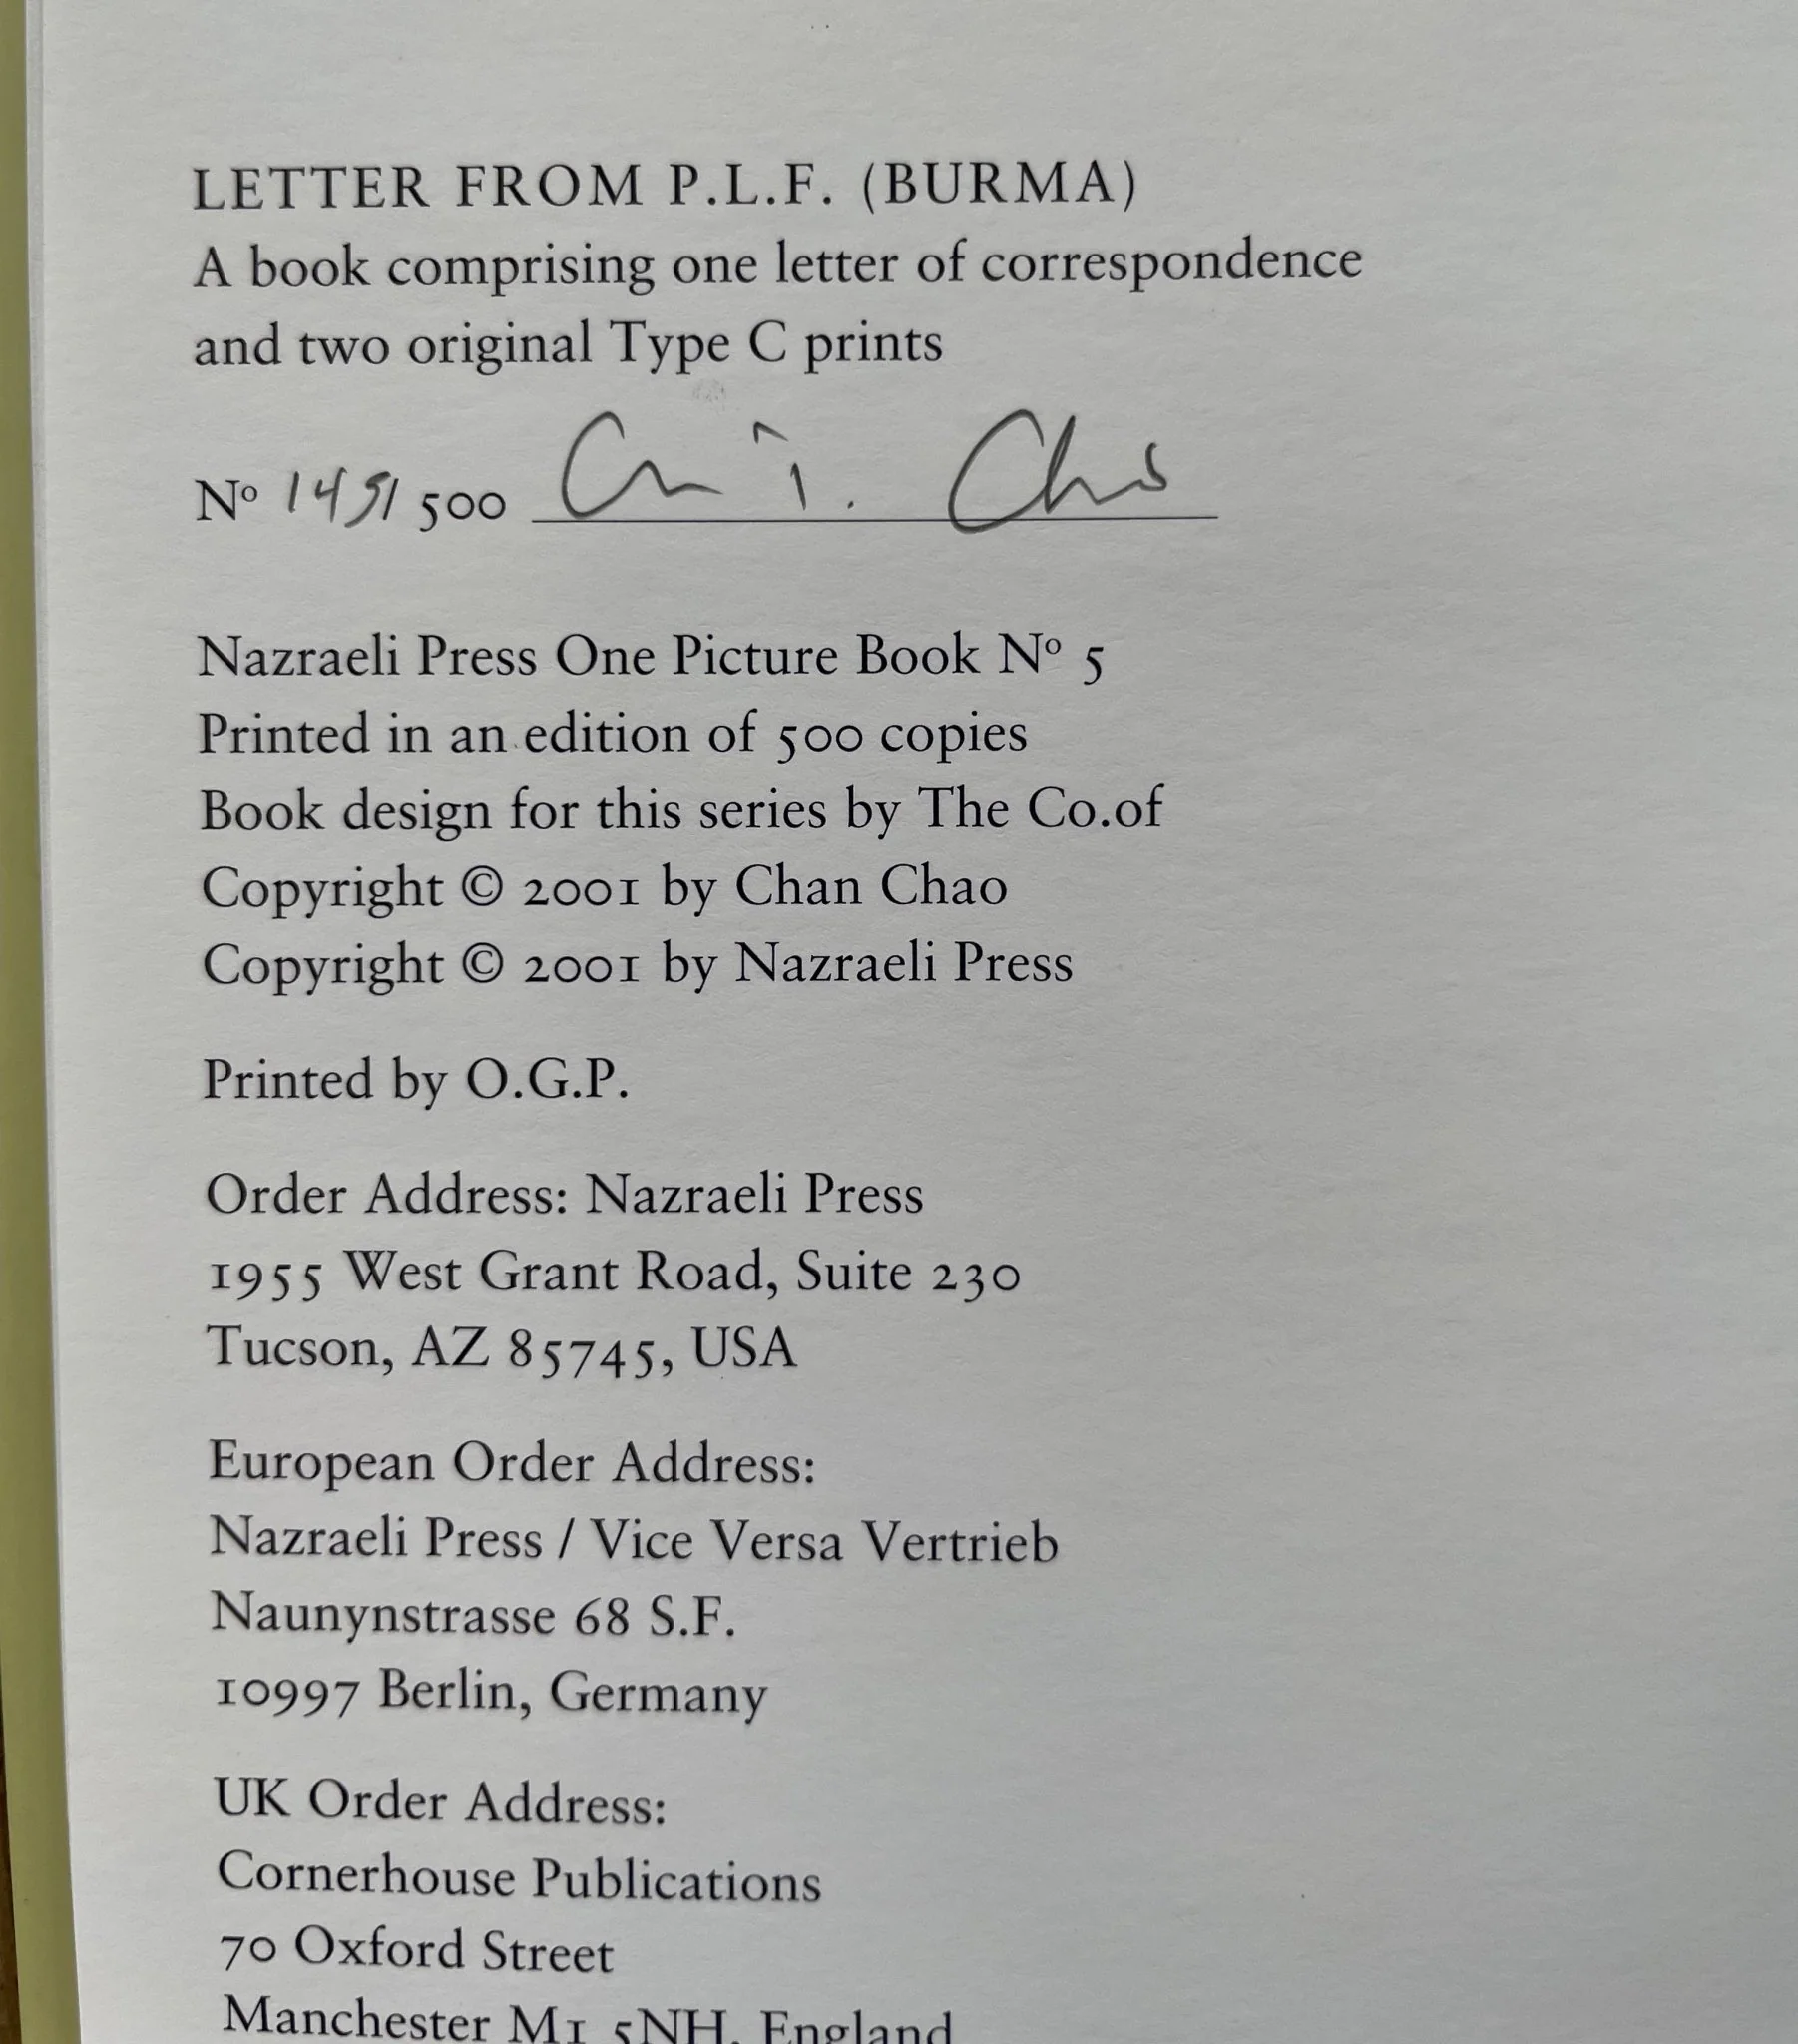 LETTER FROM P.L.F. (BURMA)
A book comprising one letter of correspondence
and two original Type C prints
Nº 145/ 500
Nazraeli Press One Picture Book Nº 5
Printed in an edition of 500 copies
Book design for this series by The Co.of
Copyright © 2001 by Chan Chao
Copyright © 2001 by Nazraeli Press
Printed by O.G.P.
Order Address: Nazraeli Press
1955 West Grant Road, Suite 230
Tucson, AZ 85745, USA
European Order Address:
Nazraeli Press / Vice Versa Vertrieb
Naunynstrasse 68 S.F.
10997 Berlin, Germany
UK Order Address:
Cornerhouse Publications
70 Oxford Street
Manchester M1 5NH, England